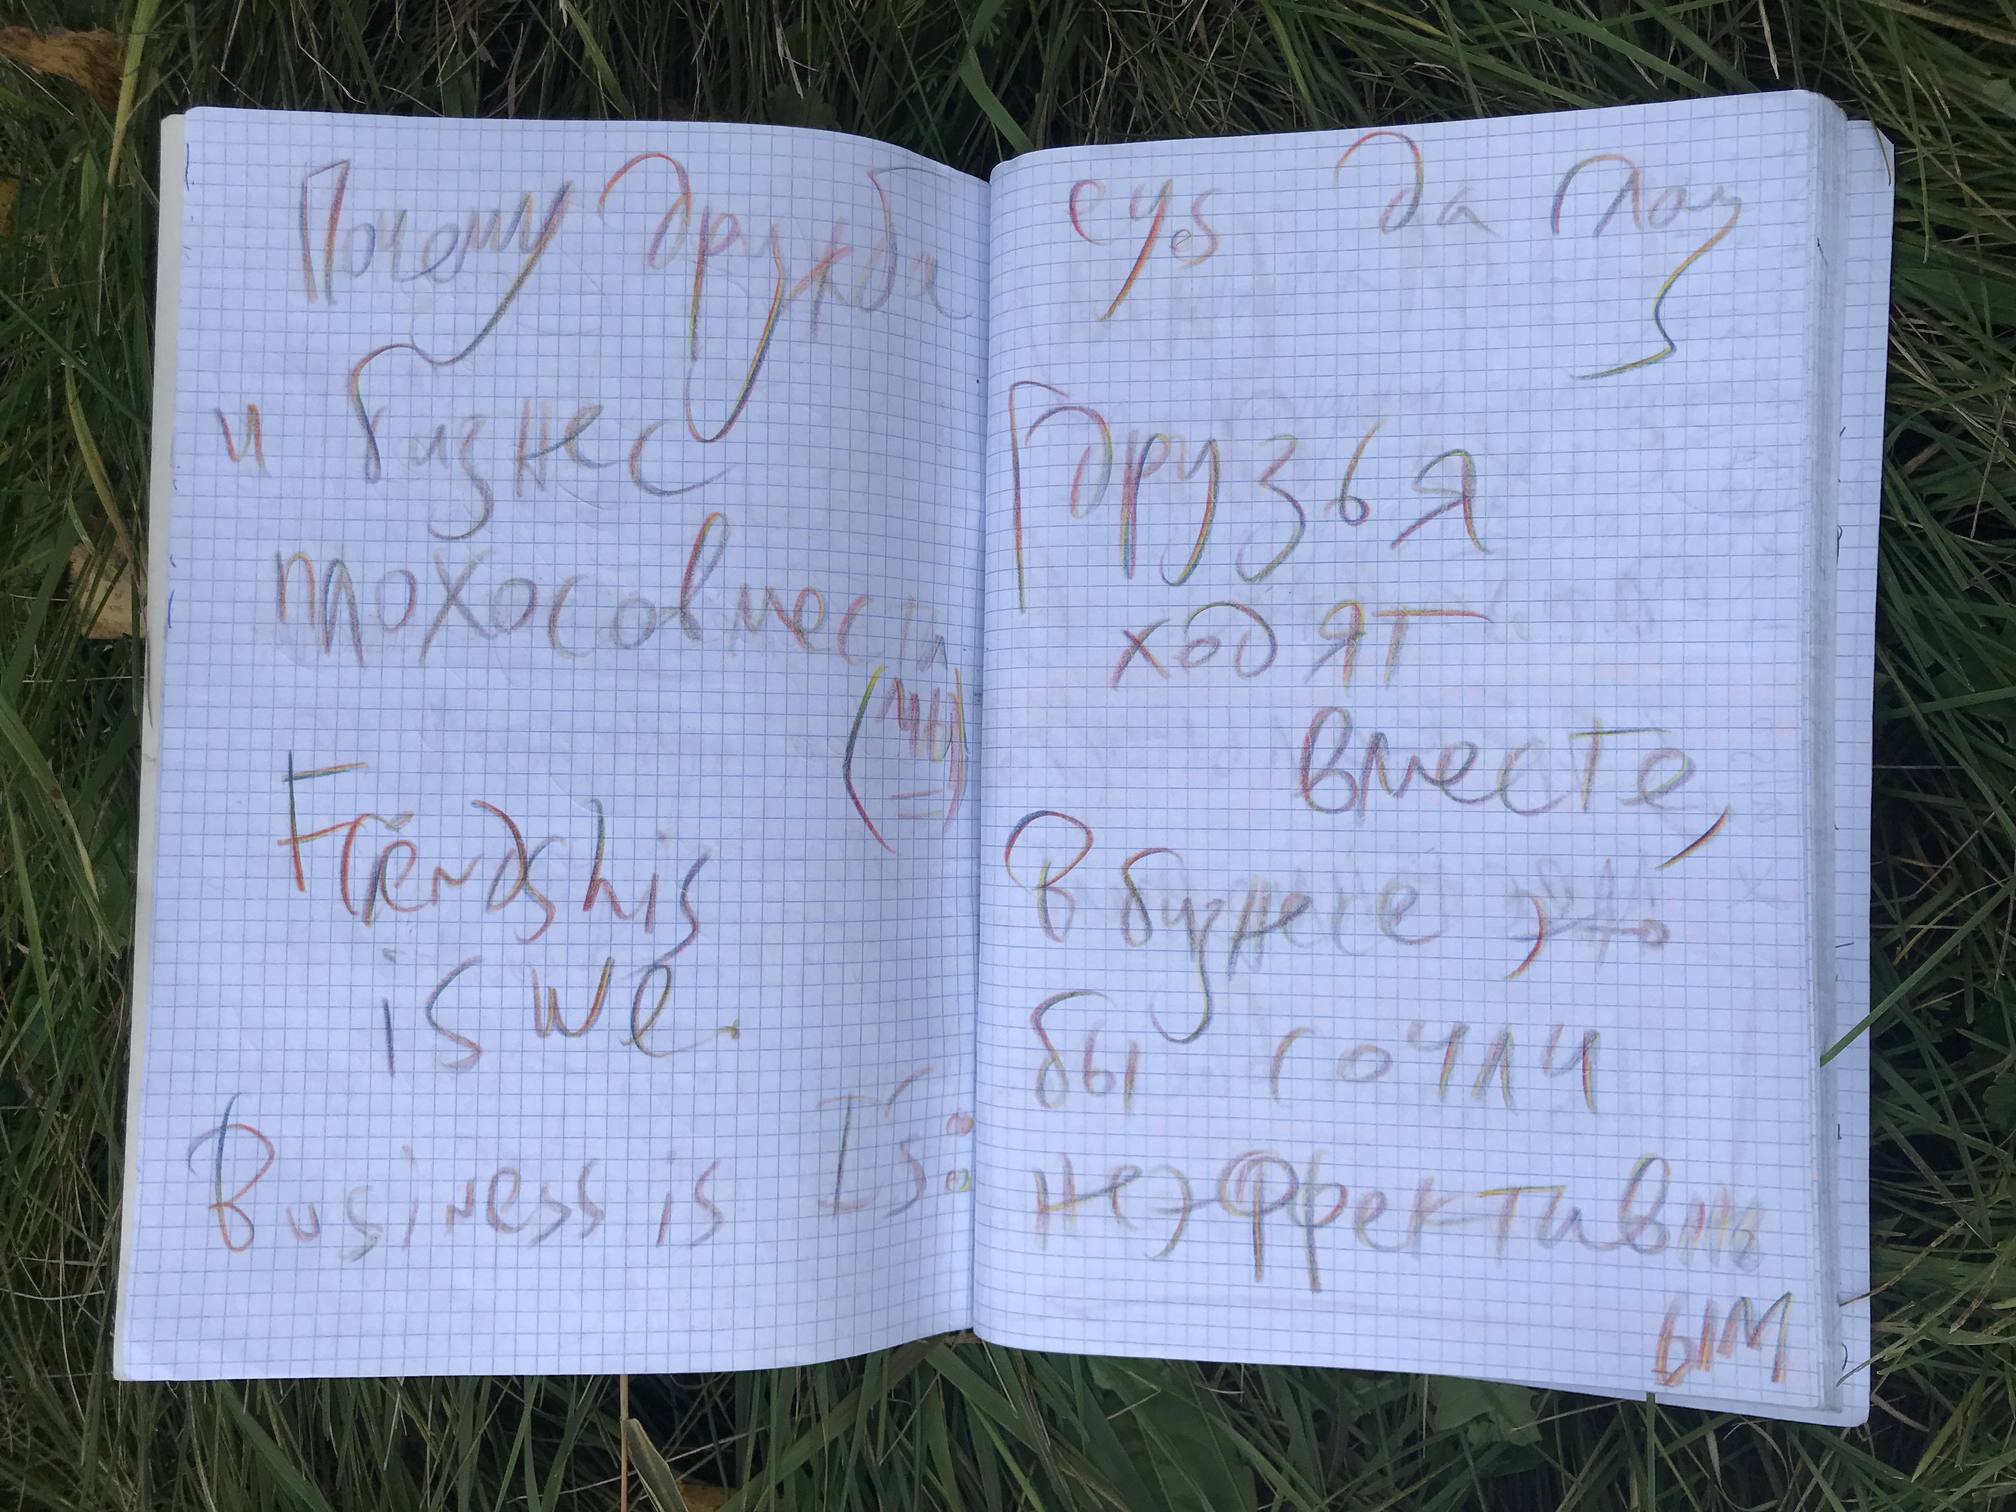 Почему дружба
и бизнес
плохо совмести
(мы)
Friendship
is we.
Business is I
да
Друзья
ходят
вместе,
в бизнесе,
бы сочли
неэффективн
ым